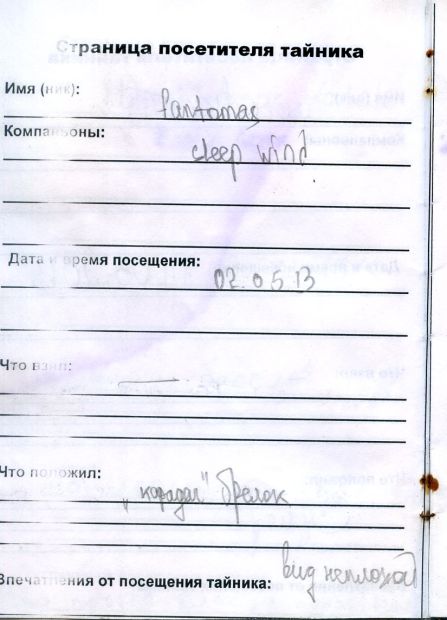 Страница посетителя тайника
Имя (ник):
fantomas
Компаньоны:
sleep wind
Дата и время посещения:
02.05.13
Что взял:
Что положил:
„карадаг" брелок
Впечатления от посещения тайника:
вид неплохой